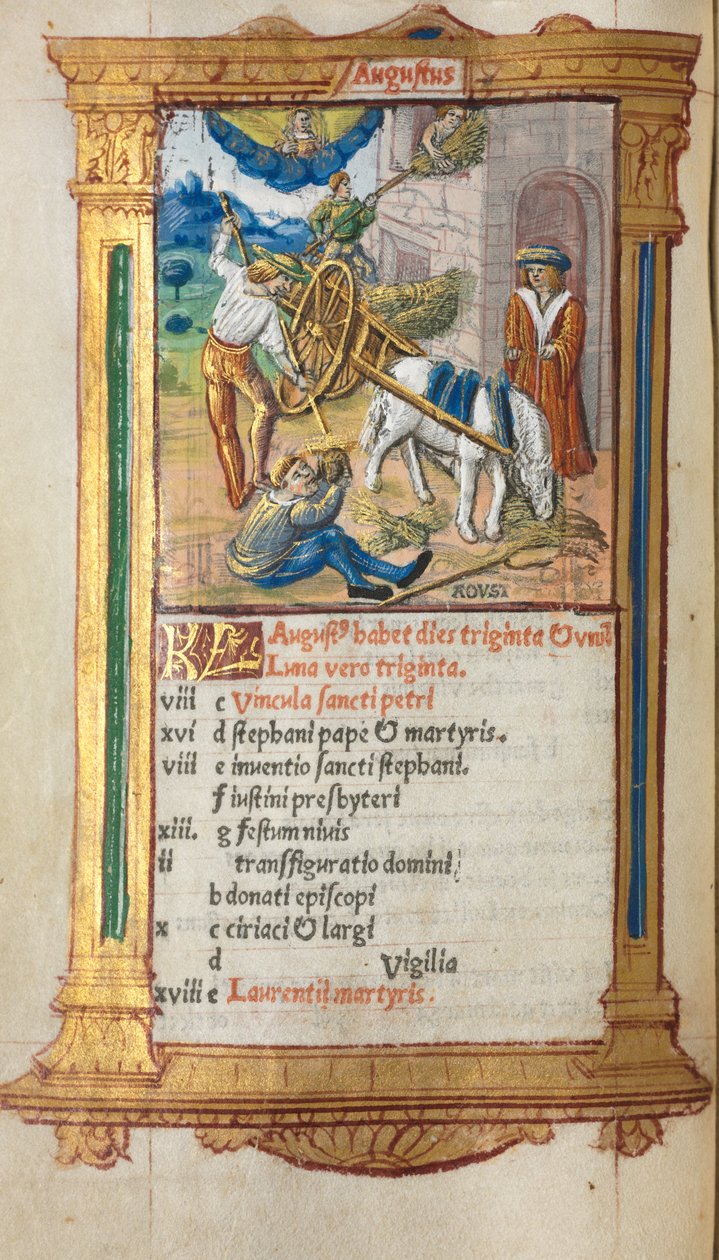 Augustus
AOVST
KL Augustꝰ habet dies triginta & vnum
Luna vero triginta.
viii c Vincula sancti petri
xvi d stephani pape & martyris.
viii e inuentio sancti stephani.
f iustini presbyteri
xiii. g festum niuis
ii transfiguratio domini
b donati episcopi
x c ciriaci & largi
d Vigilia
xviii e Laurentij martyris.